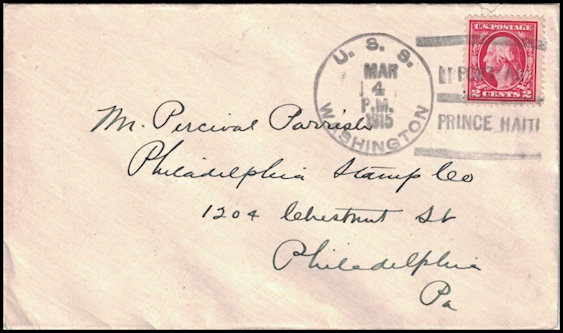 U. S. S.
MAR
4
P.M.
1915
WASHINGTON
PRINCE HAITI
U.S. POSTAGE
2 CENTS 2
Mr. Percival Parrish
Philadelphia Stamp Co
1204 Chestnut St
Philadelphia
Pa